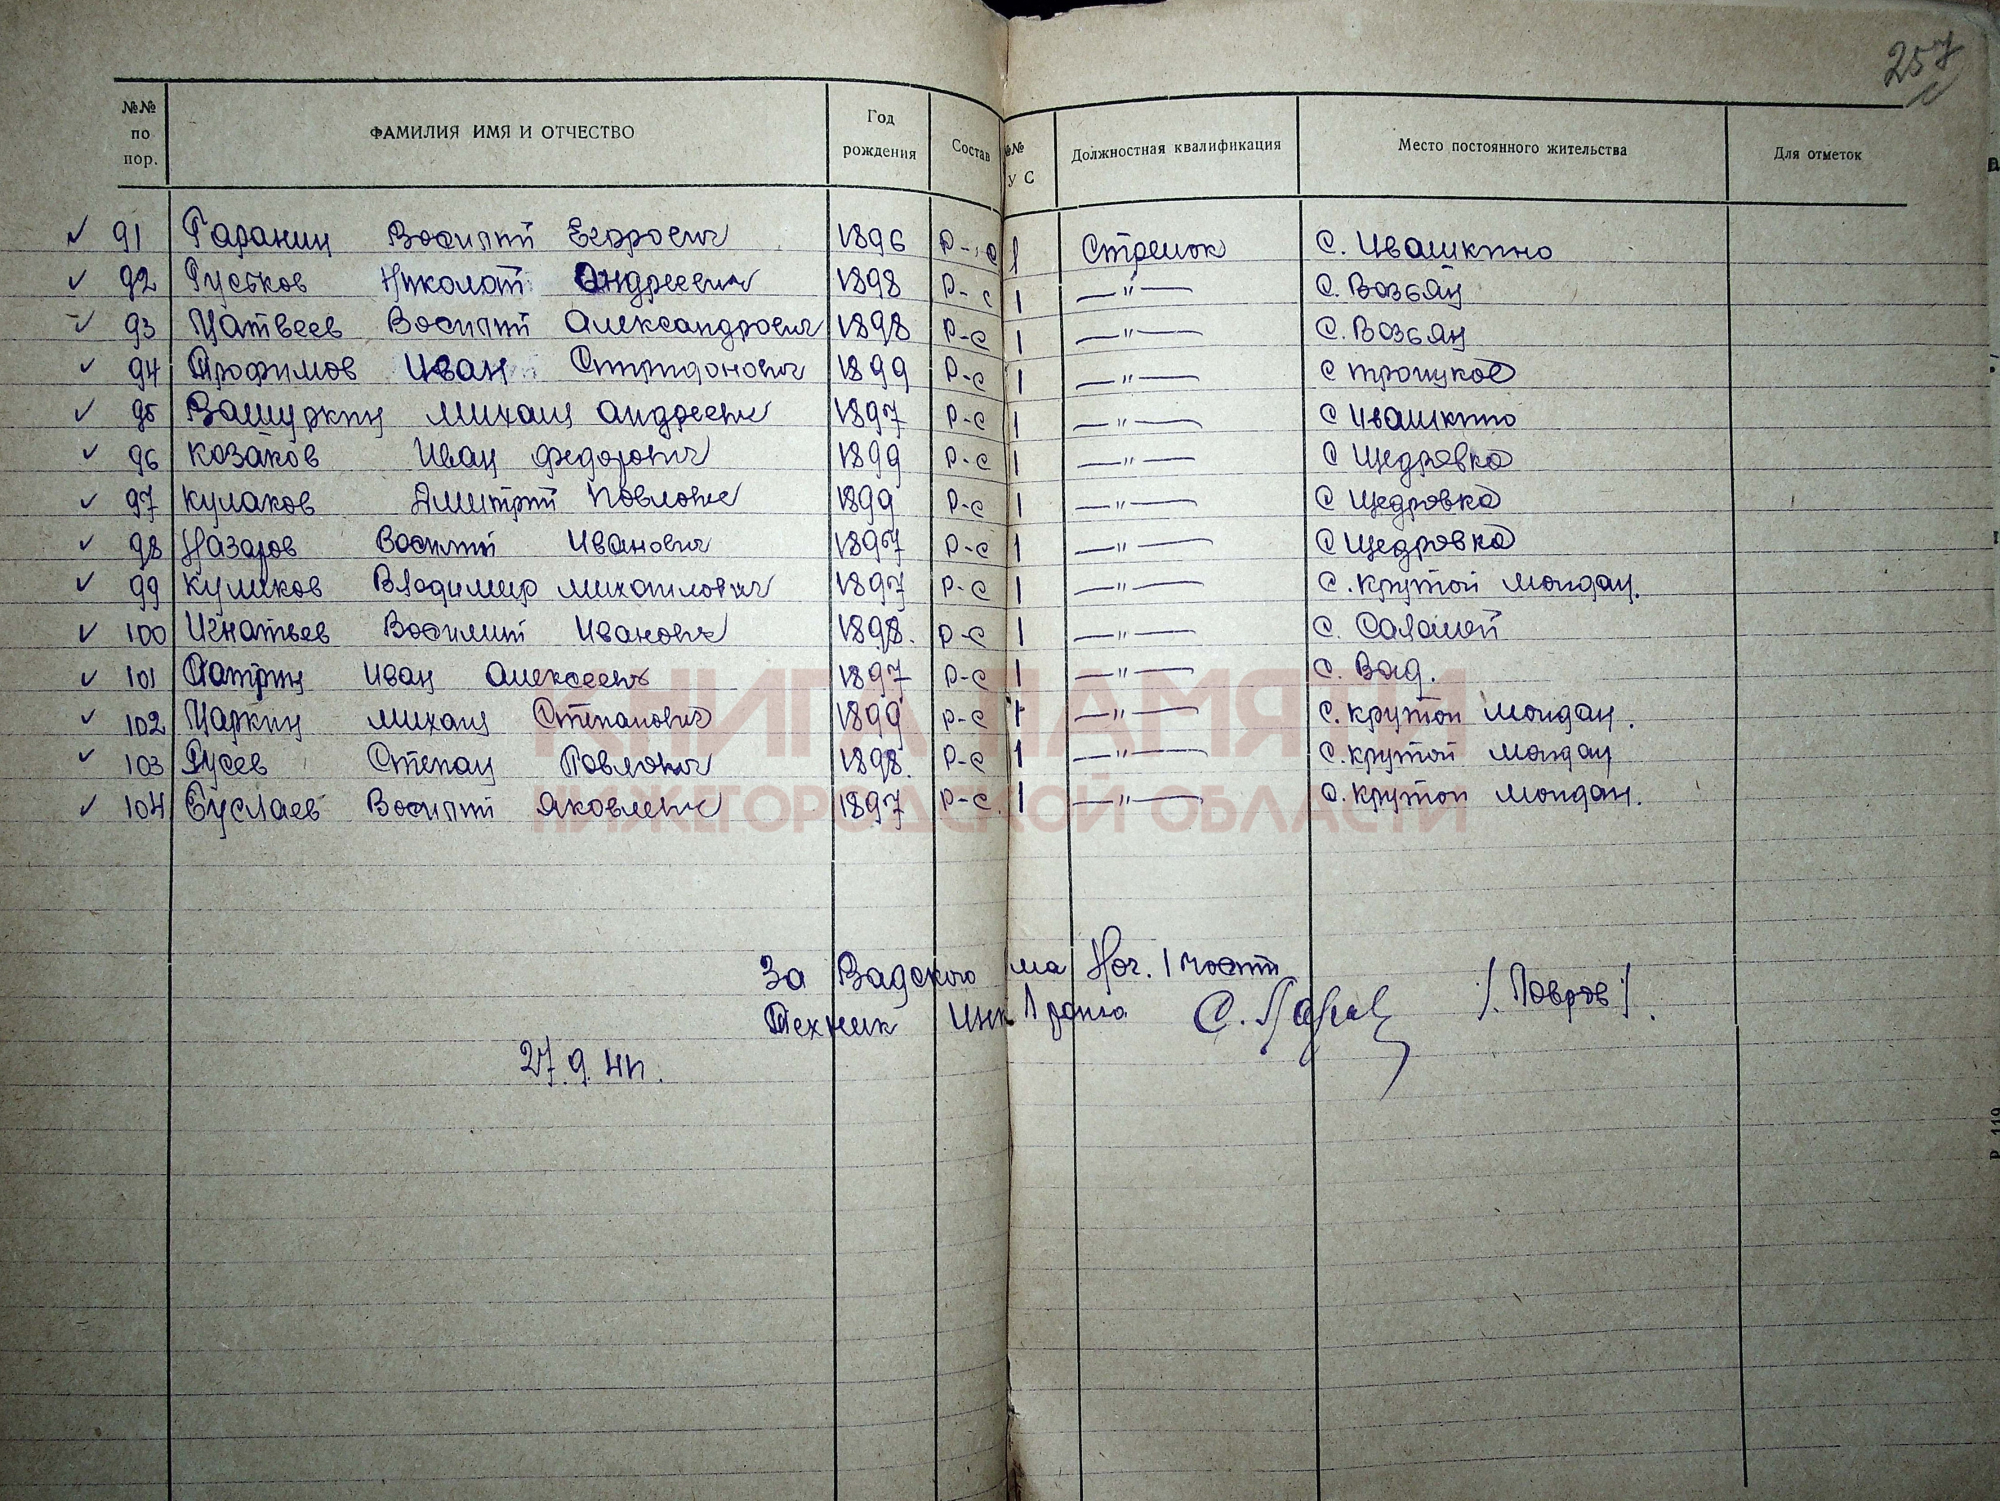 257
№№ по пор. ФАМИЛИЯ ИМЯ И ОТЧЕСТВО Год рождения Состав №№ У С Должностная квалификация Место постоянного жительства Для отметок
91 Гаранин Василий Егорович 1896 р-с 1 Стрелок с. Ивашкино
92 Гуськов Николай Андреевич 1898 р-с 1 —"— с. Возьян
93 Матвеев Василий Александрович 1898 р-с 1 —"— с. Возьян
94 Трофимов Иван Спиридонович 1899 р-с 1 —"— с Троицкое
95 Вашуркин Михаил Андреевич 1897 р-с 1 —"— с Ивашкино
96 Козаков Иван Федорович 1899 р-с 1 —"— с Щедровка
97 Кулаков Дмитрий Павлович 1899 р-с 1 —"— с Щедровка
98 Назаров Василий Иванович 1897 р-с 1 —"— с Щедровка
99 Куликов Владимир Михайлович 1897 р-с 1 —"— с. Крутой Майдан.
100 Игнатьев Василий Иванович 1898. р-с 1 —"— с.
101 Иван Алексеевич 1897 р-с 1 —"— с. Вад.
102 Маркин Михаил Степанович 1899 р-с 1 —"— с. Крутой Майдан.
103 Гусев Степан Павлович 1898. р-с 1 —"— с. Крутой Майдан
104 Буслаев Василий Яковлевич 1897 р-с. 1 —"— с. Крутой Майдан.
КНИГА ПАМЯТИ
НИЖЕГОРОДСКОЙ ОБЛАСТИ
За Вадского Нач. 1 части
Техник Инт. 1 ранга
27.9.41г.
Р 119